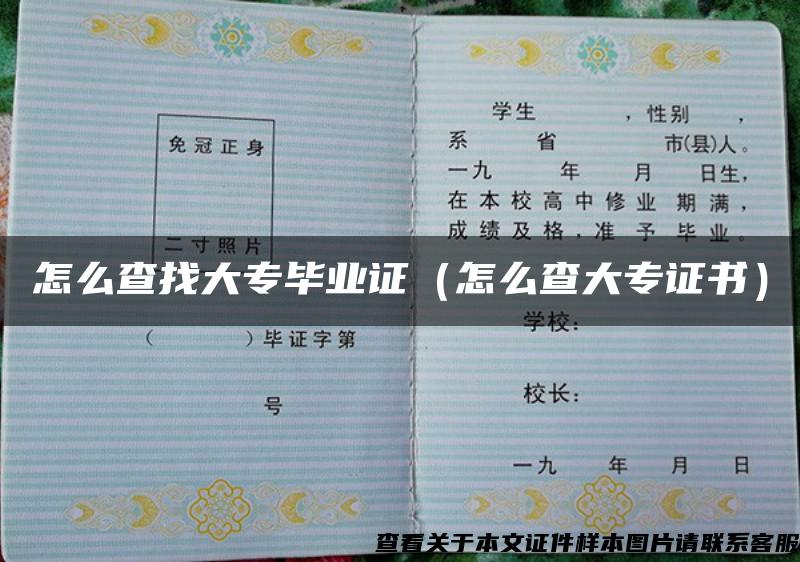 免冠正身
二寸照片
( )毕证字第
号
学生 ,性别 ,
系 省 市(县)人。
一九 年 月 日生,
在本校高中修业 期满,
成绩及格,准予毕业。
怎么查找大专毕业证(怎么查大专证书)
学校:
校长:
一九 年 月 日
查看关于本文证件样本图片请联系客服